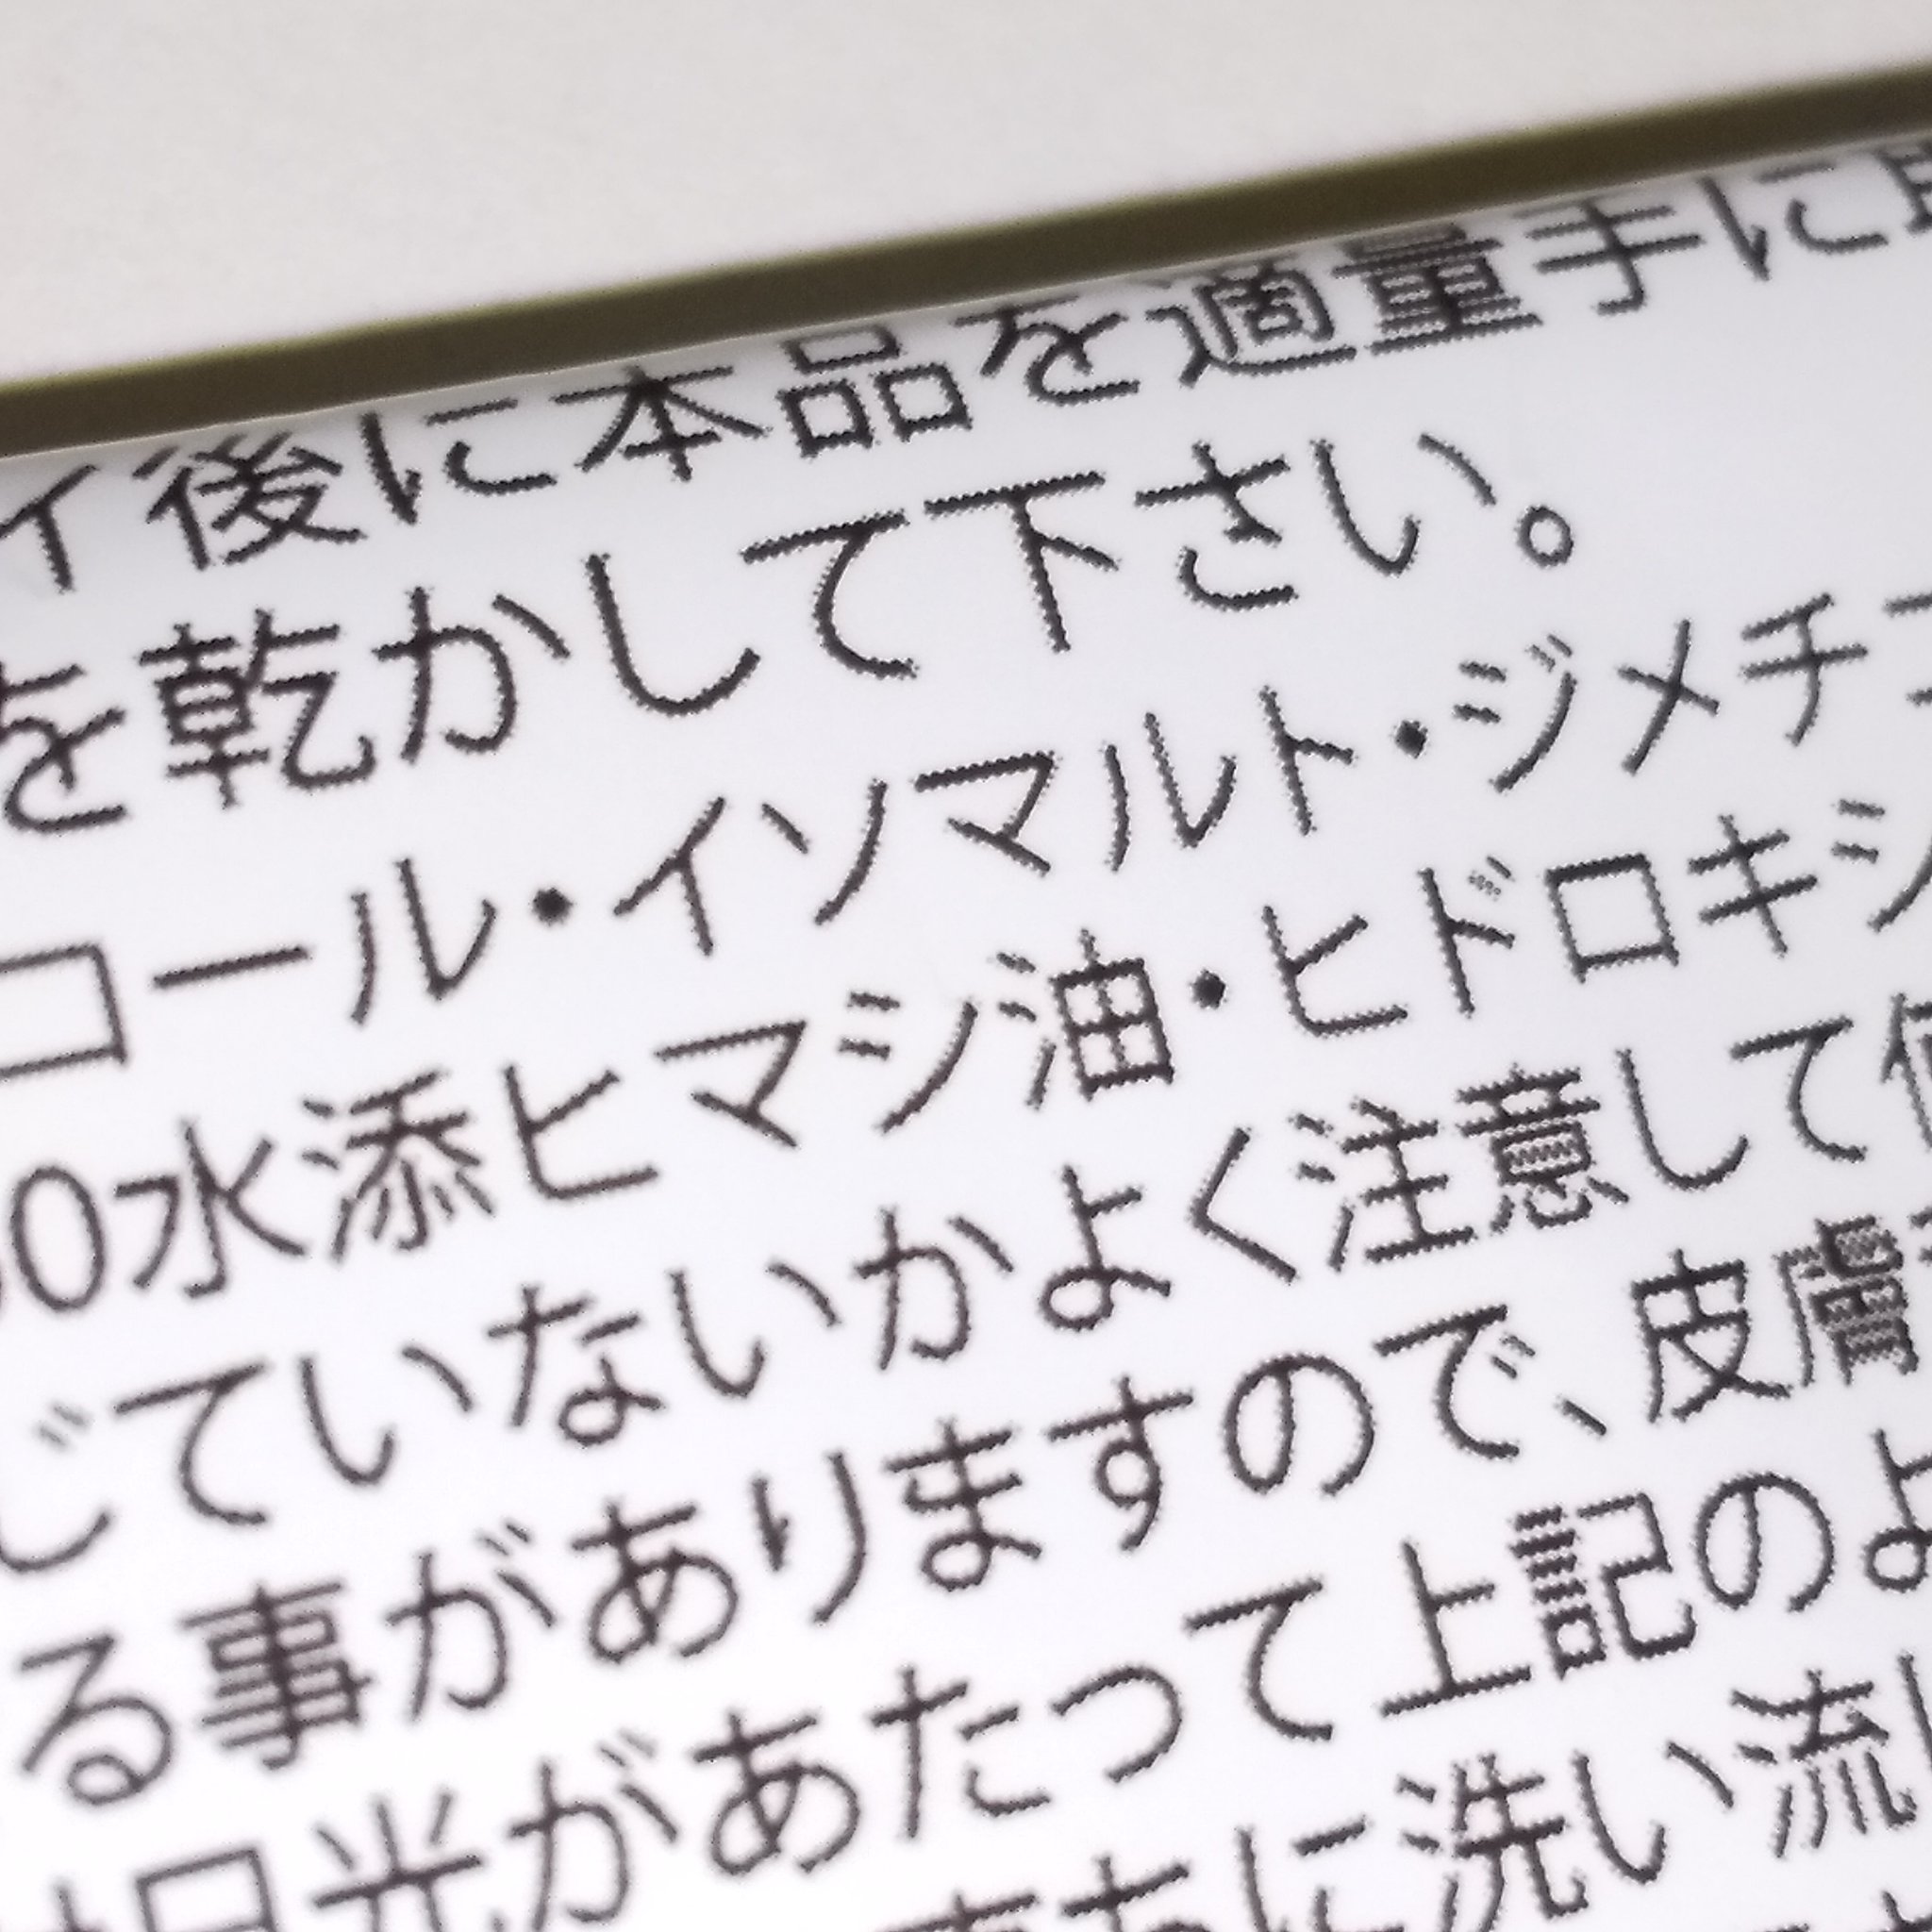 イ後に本品を適量手に
を乾かして下さい。
コール・イソマルト・ジメチ
0水添ヒマシ油・ヒドロキシ
じていないかよく注意して
る事がありますので、皮膚
日光があたって上記のよ
に洗い流し